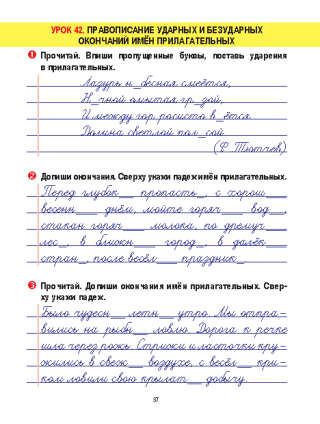 УРОК 42. ПРАВОПИСАНИЕ УДАРНЫХ И БЕЗУДАРНЫХ
ОКОНЧАНИЙ ИМЁН ПРИЛАГАТЕЛЬНЫХ
1 Прочитай. Впиши пропущенные буквы, поставь ударения
в прилагательных.
Лазурь н_бесная смеётся,
Н_чной омытая гр_зой,
И между гор росисто в_ётся
Долина светлой пол_сой.
(Ф. Тютчев)
2 Допиши окончания. Сверху укажи падеж имён прилагательных.
Перед глубок__ пропасть_, с хорош__
весенн__ днём, мойте горяч__ вод_,
стакан горяч__ молока, по дремуч__
лес_, в ближн__ город_, в далёк__
стран_, после весёл__ праздник_.
3 Прочитай. Допиши окончания имён прилагательных. Свер-
ху укажи падеж.
Было чудесн__ летн__ утро. Мы отпра-
вились на рыбн__ ловлю. Дорога к речке
шла через рожь. Стрижи и ласточки кру-
жились в свеж__ воздухе, с весёл__ кри-
ком ловили свою крылат__ добычу.
37